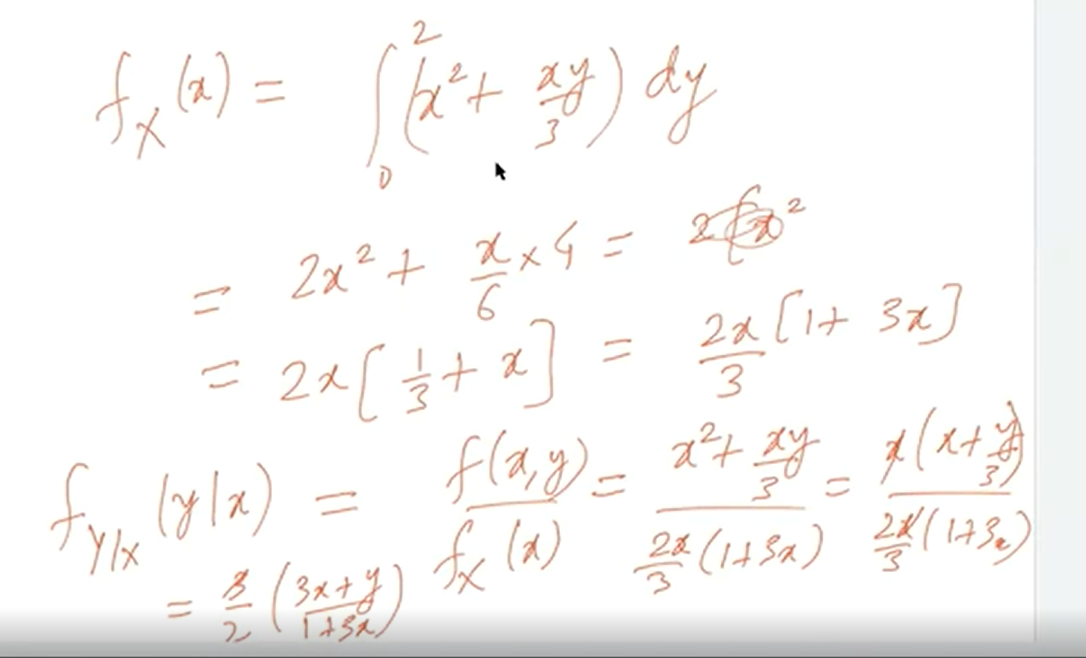 f_X(x) = ∫_0^2 (x² + xy/3) dy
= 2x² + x/6 × 4 =
= 2x[1/3 + x] = 2x/3 [1 + 3x]
f_{Y/X}(y|x) = f(x,y)/f_X(x) = (x² + xy/3)/(2x/3 (1+3x)) = x(x + y/3)/(2x/3 (1+3x))
= 3/2 ((3x+y)/(1+3x))